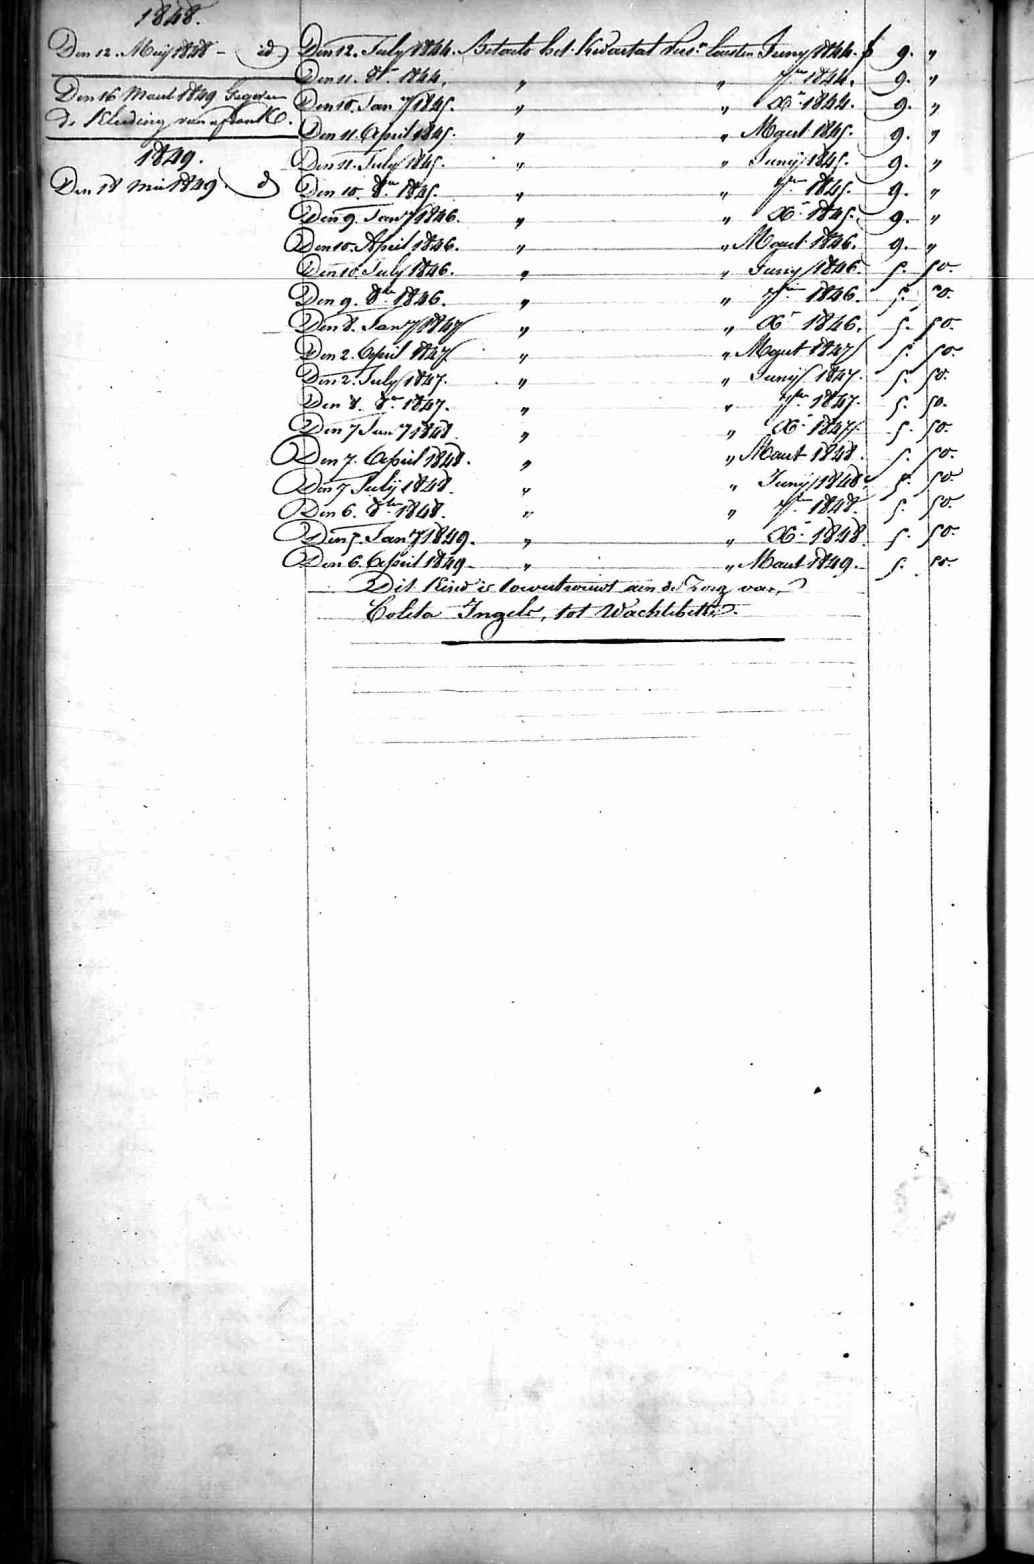 1848.
Den 12. Meij 1848 - id
Den 16 Maart 1849 Gegeven
de Kleeding van
1849.
Den 18 Mei 1849. d
Den 12. July 1844. Betaelt het kwartaal Junij 1844. f 9. "
Den 11. 8br 1844. " " 7ber 1844. 9. "
Den 10. Jany 1845. " " Xr 1844. 9. "
Den 11. April 1845. " " Maart 1845. 9. "
Den 11. July 1845. " " Junij 1845. 9. "
Den 10. 8br 1845. " " 7ber 1845. 9. "
Den 9. Jany 1846. " " Xr 1845. 9. "
Den 10. April 1846. " " Maart 1846. 9. "
Den 10. July 1846. " " Junij 1846. 5. 50.
Den 9. 8br 1846. " " 7ber 1846. 5. 50.
Den 8. Jany 1847 " " Xr 1846. 5. 50.
Den 2. April 1847. " " Maart 1847 5. 50.
Den 2. July 1847. " " Junij 1847. 5. 50.
Den 8. 8br 1847. " " 7ber 1847. 5. 50.
Den 7 Jany 1848 " " Xr 1847. 5. 50.
Den 7. April 1848. " " Maart 1848. 5. 50.
Den 7 Julij 1848. " " Junij 1848. 5. 50.
Den 6. 8br 1848. " " 7ber 1848. 5. 50.
Den 5. Jany 1849. " " Xr 1848 5. 50.
Den 6. April 1849 " " Maart 1849. 5. 50.
Dit Kind is toevertrouwt aen de Zorg van
Coleta Ingels, tot Wachtebeke.